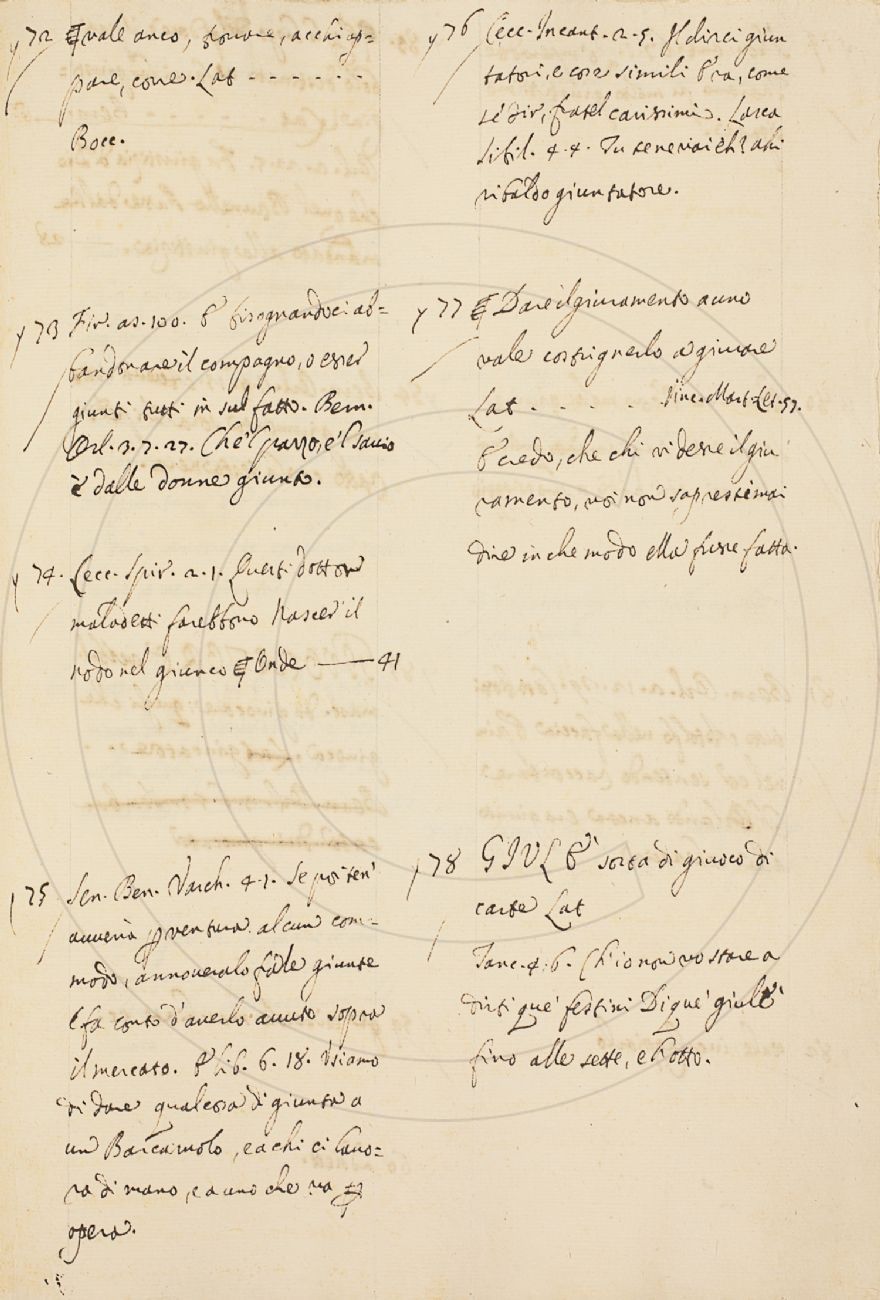 y 72 ¶ vale anco, trovare, acchiap=
pare, corre. Lat - - - - - -
Bocc.
y 73 Fir. as. 100. E bisognandoci ab=
bandonare il compagno, o esser
giunti tutti in sul fatto. Bern.
Orl. 3. 7. 27. Che'l pazzo, e'l savio
è dalle donne giunto.
y 74. Cecc. Spir. 2. 1. Questi dottor
maladetti farebbono nascer il
nodo nel giunco ¶ Onde —— 41
y 75 Sen. Ben. Varch. 4. 1. Se poi ten'
avverrà p ventura alcun com=
modo, annoveralo fra le giunte
e fa conto d'averlo avuto sopra
il mercato. E lib. 6. 18. Usiamo
di dare qualcosa di giunta a
un Barcaruolo, e a chi ci lavo=
ra di mano, e a uno che va p
opera.
y 76 Cecc. Incant. 2. 5. Il dirci giun
tatori, e cose simili è ra, come
se dir, fratel carissimo. Lasca
Sibil. 4. 4. Tu se' ne vai eh? ahi
ribaldo giuntatore.
y 77 ¶ Dare il giuramento a uno
vale costrignerlo a giurare
Lat - - - - - Vinc. Mart. Let. 57.
E credo, che chi vi desse il giu
ramento, voi non sapreste mai
dire in che modo ella fusse fatta.
y 78 GIULÈ sorta di giuoco di
carte Lat
Tanc. 4. 6. Ch'io non vo stare a
dirti que' festini Di que' giulè
fino alle sette, e l'otto.